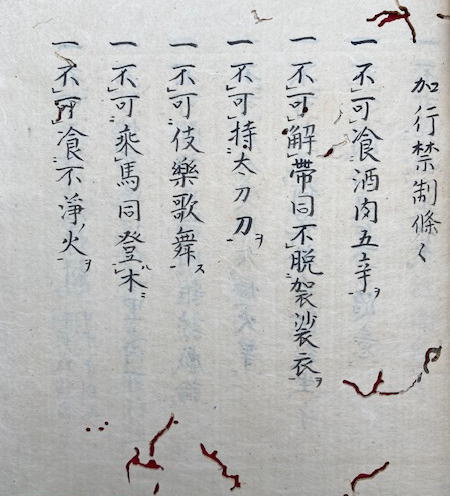 加行禁制條〻
一 不可飡酒肉五辛ヲ
一 不可解帶同不脱袈裟衣ヲ
一 不可持太刀刀ヲ
一 不可伎樂歌舞ス
一 不可乘馬同登木ニ
一 不可飡不淨ノ火ヲ